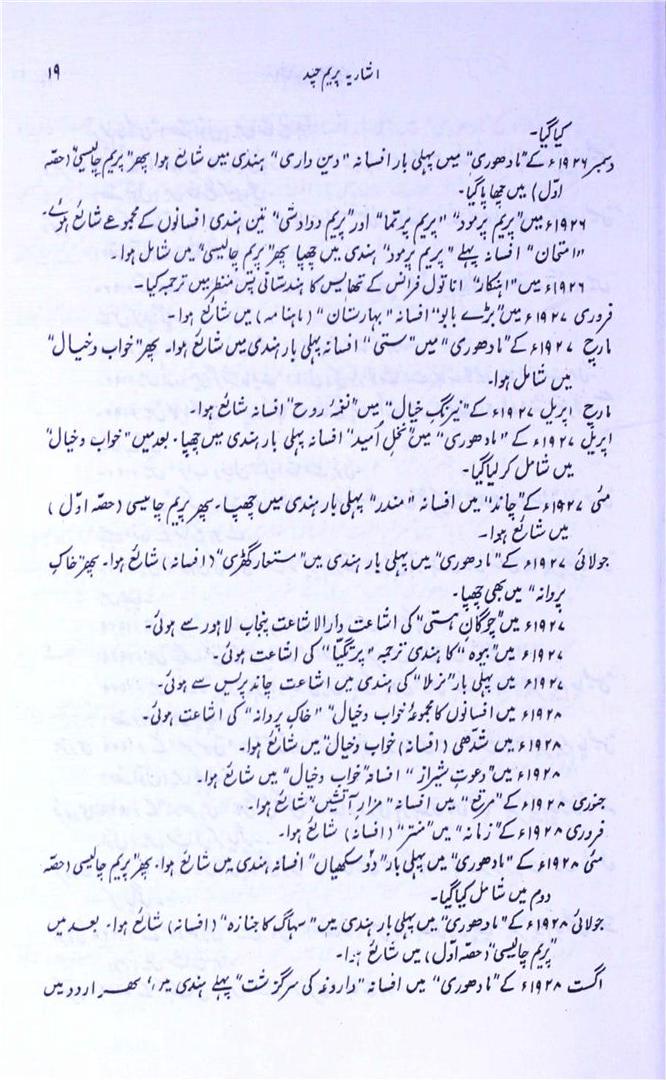 اشاریہ پریم چند ۱۹
کیا گیا۔
دسمبر ۱۹۲۶ء کے "مادھوری" میں پہلی بار افسانہ "دین داری" ہندی میں شائع ہوا پھر "پریم چالیسی" (حصّہ
اوّل) میں چھاپا گیا۔
۱۹۲۶ء میں "پریم پرمود" "پریم پرتما" اور "پریم دوادشی" تین ہندی افسانوں کے مجموعے شائع ہوئے۔
"امتحان" افسانہ پہلے "پریم پرمود" ہندی میں چھپا پھر "پریم چالیسی" میں شامل ہوا۔
۱۹۲۶ء میں "اہنکار" اناتول فرانس کے تھایس کا ہندستانی پس منظر میں ترجمہ کیا۔
فروری ۱۹۲۷ء میں "بڑے بابو" افسانہ "بہارستان" (ماہنامہ) میں شائع ہوا۔
مارچ ۱۹۲۷ء کے "مادھوری" میں "ستی" افسانہ پہلی بار ہندی میں شائع ہوا۔ پھر "خواب و خیال"
میں شامل ہوا۔
مارچ اپریل ۱۹۲۷ء کے "نیرنگِ خیال" میں "نغمۂ روح" افسانہ شائع ہوا۔
اپریل ۱۹۲۷ء کے "مادھوری" میں "نخلِ اُمید" افسانہ پہلی بار ہندی میں چھپا۔ بعد میں "خواب و خیال"
میں شامل کر لیا گیا۔
مئی ۱۹۲۷ء کے "چاند" میں افسانہ "مندر" پہلی بار ہندی میں چھپا۔ پھر پریم چالیسی (حصّہ اوّل)
میں شائع ہوا۔
جولائی ۱۹۲۷ء کے "مادھوری" میں پہلی بار ہندی میں "مستعار گھڑی" (افسانہ) شائع ہوا۔ پھر "خاکِ
پروانہ" میں بھی چھپا۔
۱۹۲۷ء میں "چوگانِ ہستی" کی اشاعت دارالاشاعت پنجاب لاہور سے ہوئی۔
۱۹۲۷ء میں "بیوہ" کا ہندی ترجمہ "پرتگیا" کی اشاعت ہوئی۔
۱۹۲۷ء میں پہلی بار "نرملا" کی ہندی میں اشاعت چاند پریس سے ہوئی۔
۱۹۲۸ء میں افسانوں کا مجموعۂ خواب و خیال" "خاکِ پروانہ" کی اشاعت ہوئی۔
۱۹۲۸ء میں شدّھی (افسانہ) خواب و خیال" میں شائع ہوا۔
۱۹۲۸ء میں "دعوتِ شیراز" افسانہ "خواب و خیال" میں شائع ہوا۔
جنوری ۱۹۲۸ء کے "مرقع" میں افسانہ "مزارِ آتشیں" شائع ہوا۔
فروری ۱۹۲۸ء کے "زمانہ" میں "منتر" (افسانہ) شائع ہوا۔
مئی ۱۹۲۸ء کے "مادھوری" میں پہلی بار "دو سکھیاں" افسانہ ہندی میں شائع ہوا۔ پھر "پریم چالیسی (حصّہ
دوم میں شامل کیا گیا۔
جولائی ۱۹۲۸ء کے "مادھوری" میں پہلی بار ہندی میں "سہاگ کا جنازہ" (افسانہ) شائع ہوا۔ بعد میں
"پریم چالیسی" (حصّہ اوّل) میں شائع ہوا۔
اگست ۱۹۲۸ء کے "مادھوری" میں افسانہ "داروغہ کی سرگزشت" پہلے ہندی میں، پھر اردو میں